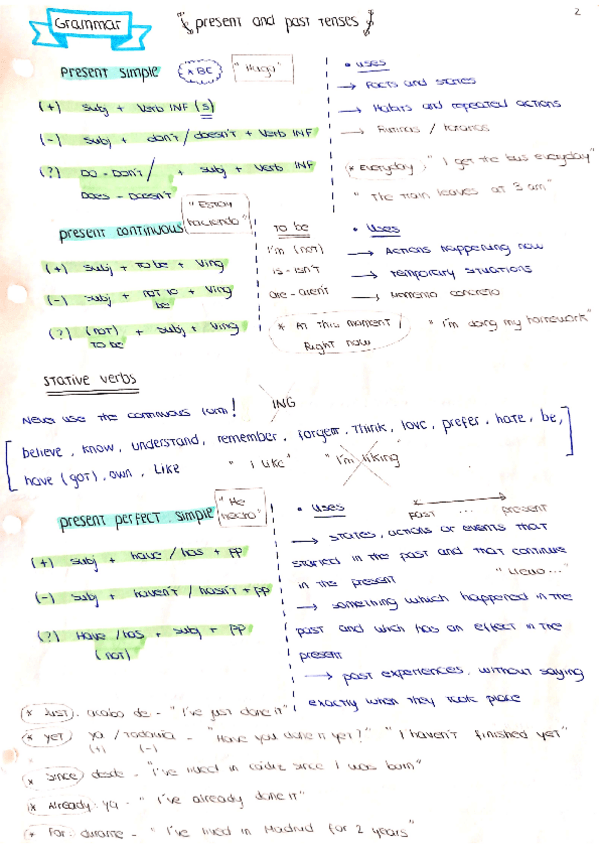 2
Grammar
present and past tenses
present simple
* ABC
"Hago"
(+) subj + Verb INF (s)
(-) subj + don't / doesn't + Verb INF
(?) DO - Don't / + subj + Verb INF
Does - Doesn't
• uses
→ Facts and states
→ Habits and repeated actions
→ / horarios
* Everyday, "I get the bus everyday"
"The train leaves at 3 am"
present continuous
"Estoy haciendo"
(+) subj + To be + Ving
(-) subj + not to be + Ving
(?) (not) + subj + Ving
TO be
To be
I'm (not)
is - isn't
are - aren't
• Uses
→ Actions happening now
→ Temporary situations
→ Momento concreto
* At this moment /
Right now
"I'm doing my homework"
Stative verbs
Never use the continuous form!
ING
believe, know, understand, remember, forget, think, love, prefer, hate, be,
have (got), own, like
"I like"
"I'm liking"
present perfect simple
"He hecho"
(+) subj + have / has + pp
(-) subj + haven't / hasn't + pp
(?) Have / has + subj + pp
(not)
• Uses
past ... present
→ states, actions or events that
started in the past and that continue
in the present
→ something which happened in the
past and wich has an effect in the
present
→ past experiences, without saying
exactly when they took place
* Just. acabo de - "I've just done it"
* yet ya / todavia - "Have you done it yet?" "I haven't finished yet"
(+) (-)
* since desde - "I've lived in cadiz since I was born"
* Already: ya - "I've already done it"
* For: durante - "I've lived in Madrid for 2 years"